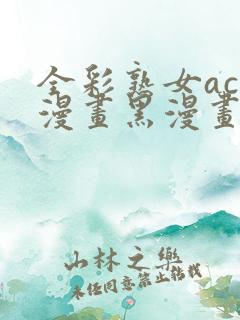 全彩熟女ac
漫畫黑漫畫
山林之樂
未经同意禁止转载